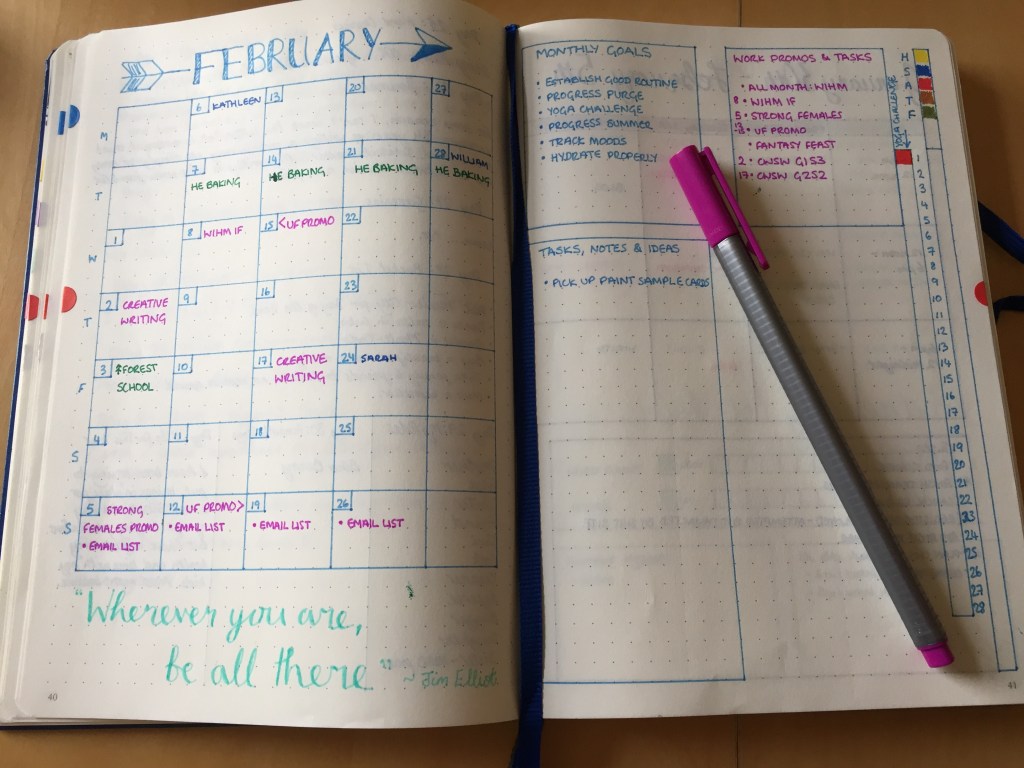 FEBRUARY
M
6 KATHLEEN
13
20
27
T
7
HE BAKING
14
HE BAKING
21
HE BAKING
28 WILLIAM
HE BAKING
W
1
8 WIHM IF
15 <UF PROMO
22
T
2 CREATIVE
WRITING
9
16
23
F
3 FOREST
SCHOOL
10
17 CREATIVE
WRITING
24 SARAH
S
4
11
18
25
S
5 STRONG
FEMALES PROMO
• EMAIL LIST
12 UF PROMO>
• EMAIL LIST
19
• EMAIL LIST
26
• EMAIL LIST
"Wherever you are,
be all there"
~ Jim Elliot
40
MONTHLY GOALS
• ESTABLISH GOOD ROUTINE
• PROGRESS PURGE
• YOGA CHALLENGE
• PROGRESS SUMMER
• TRACK MOODS
• HYDRATE PROPERLY
WORK PROMOS & TASKS
• ALL MONTH: WIHM
8 • WIHM IF
5 • STRONG FEMALES
• UF PROMO
• FANTASY FEAST
2 • CWSW G1S3
17 • CWSW G2S2
TASKS, NOTES & IDEAS
• PICK UP PAINT SAMPLE CARDS
H
S
A
T
F
YOGA CHALLENGE
1
2
3
4
5
6
7
8
9
10
11
12
13
14
15
16
17
18
19
20
21
22
23
24
25
26
27
28
41